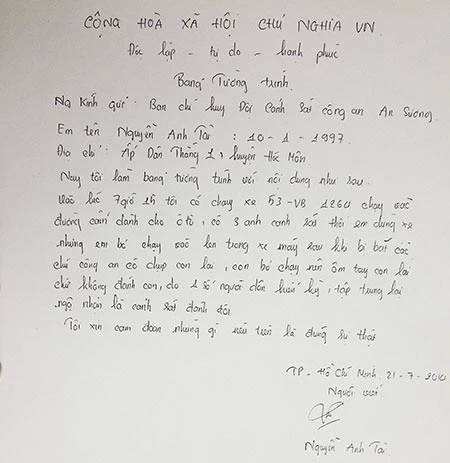 CỘNG HOÀ XÃ HỘI CHỦ NGHĨA VN.
Độc lập - tự do - hạnh phúc
Bảng Tường trình.
Kính gửi: Ban chỉ huy Đội Cảnh sát công an An Sương.
Em tên Nguyễn Anh Tài : 10-1-1997.
Địa chỉ: Ấp Dân Thắng 1, huyện Hóc Môn.
Nay tôi làm bảng tường trình với nội dung như sau:
Vào lúc 7giờ 15 tôi có chạy xe 53-VB 1260 chạy vào
đường cấm dành cho ô tô, có 3 anh cảnh sát thổi em dừng xe
nhưng em bỏ chạy vào lên trong xe máy sau khi bị bắt các
chú công an có chụp con lại, con bỏ chạy nên ôm tay con lại
chứ không đánh con, do 1 số người dân hiếu kỳ, tập trung lại
ngộ nhận là cảnh sát đánh
Tôi xin cam đoan những gì nêu trên là đúng sự thật
TP - Hồ Chí Minh, 21-7-
Người viết
Nguyễn Anh Tài